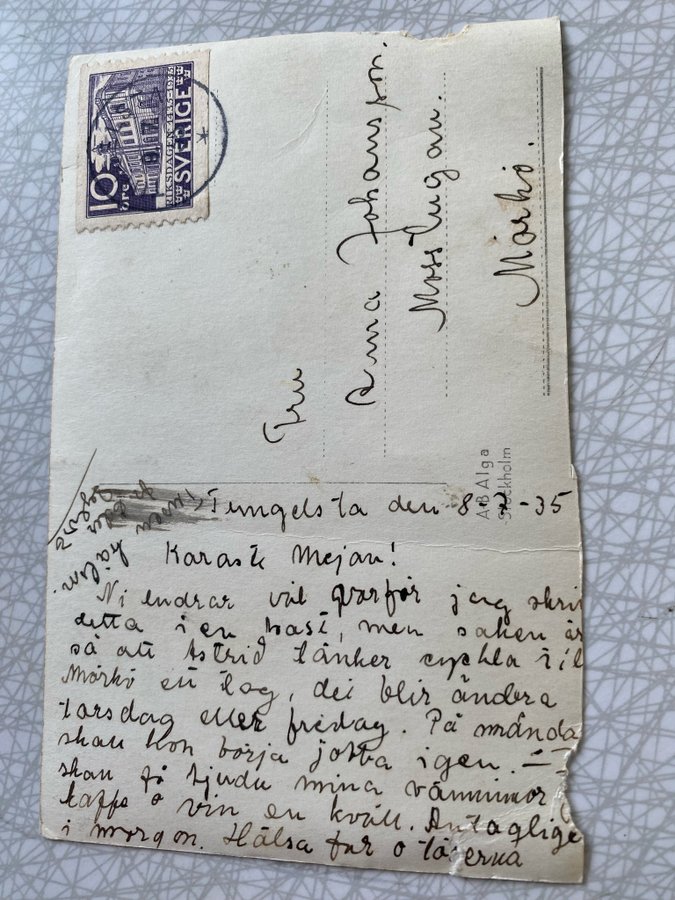 10
ÖRE
RIKSDAGEN 1435 1935
SVERIGE
Fru
Anna Johansson.
Mosstugan.
Mörkö.
A-B Alga
Stockholm
Tungelsta den 8 -35
Käraste Mejan!
Ni undrar väl varför jag skri
detta i en hast, men saken är
så att Astrid tänker cykla till
Mörkö ett tag, det blir
torsdag eller fredag. På månda
skall hon börja jobba igen.
skall få bjuda mina väninnor
kaffe o vin en kväll. Antaglige
i morgon. Hälsa far o